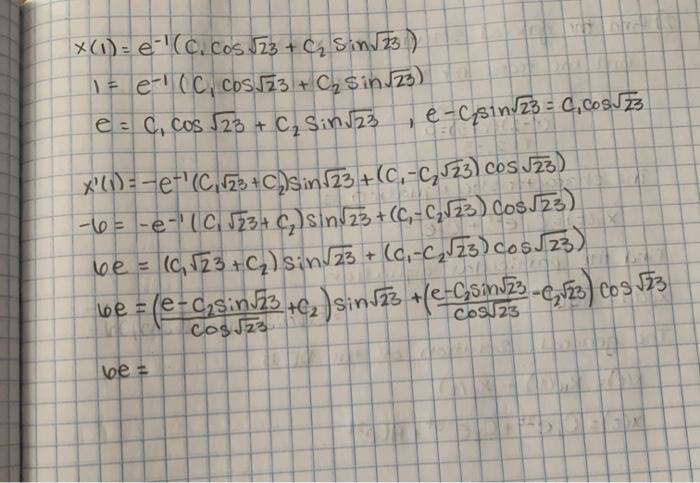 x(1) = e⁻¹(C₁ cos√23 + C₂ sin√23)
1 = e⁻¹(C₁ cos√23 + C₂ sin√23)
e = C₁ cos√23 + C₂ sin√23 , e - C₂sin√23 = C₁cos√23
x'(1) = -e⁻¹(C₁√23 + C₂)sin√23 + (C₁ - C₂√23) cos√23)
-6 = -e⁻¹(C₁√23 + C₂)sin√23 + (C₁ - C₂√23) cos√23)
6e = (C₁√23 + C₂) sin√23 + (C₁ - C₂√23) cos√23)
6e = ((e - C₂sin√23)/(cos√23) + C₂) sin√23 + ((e - C₂sin√23)/(cos√23) - C₂√23) cos√23
6e =